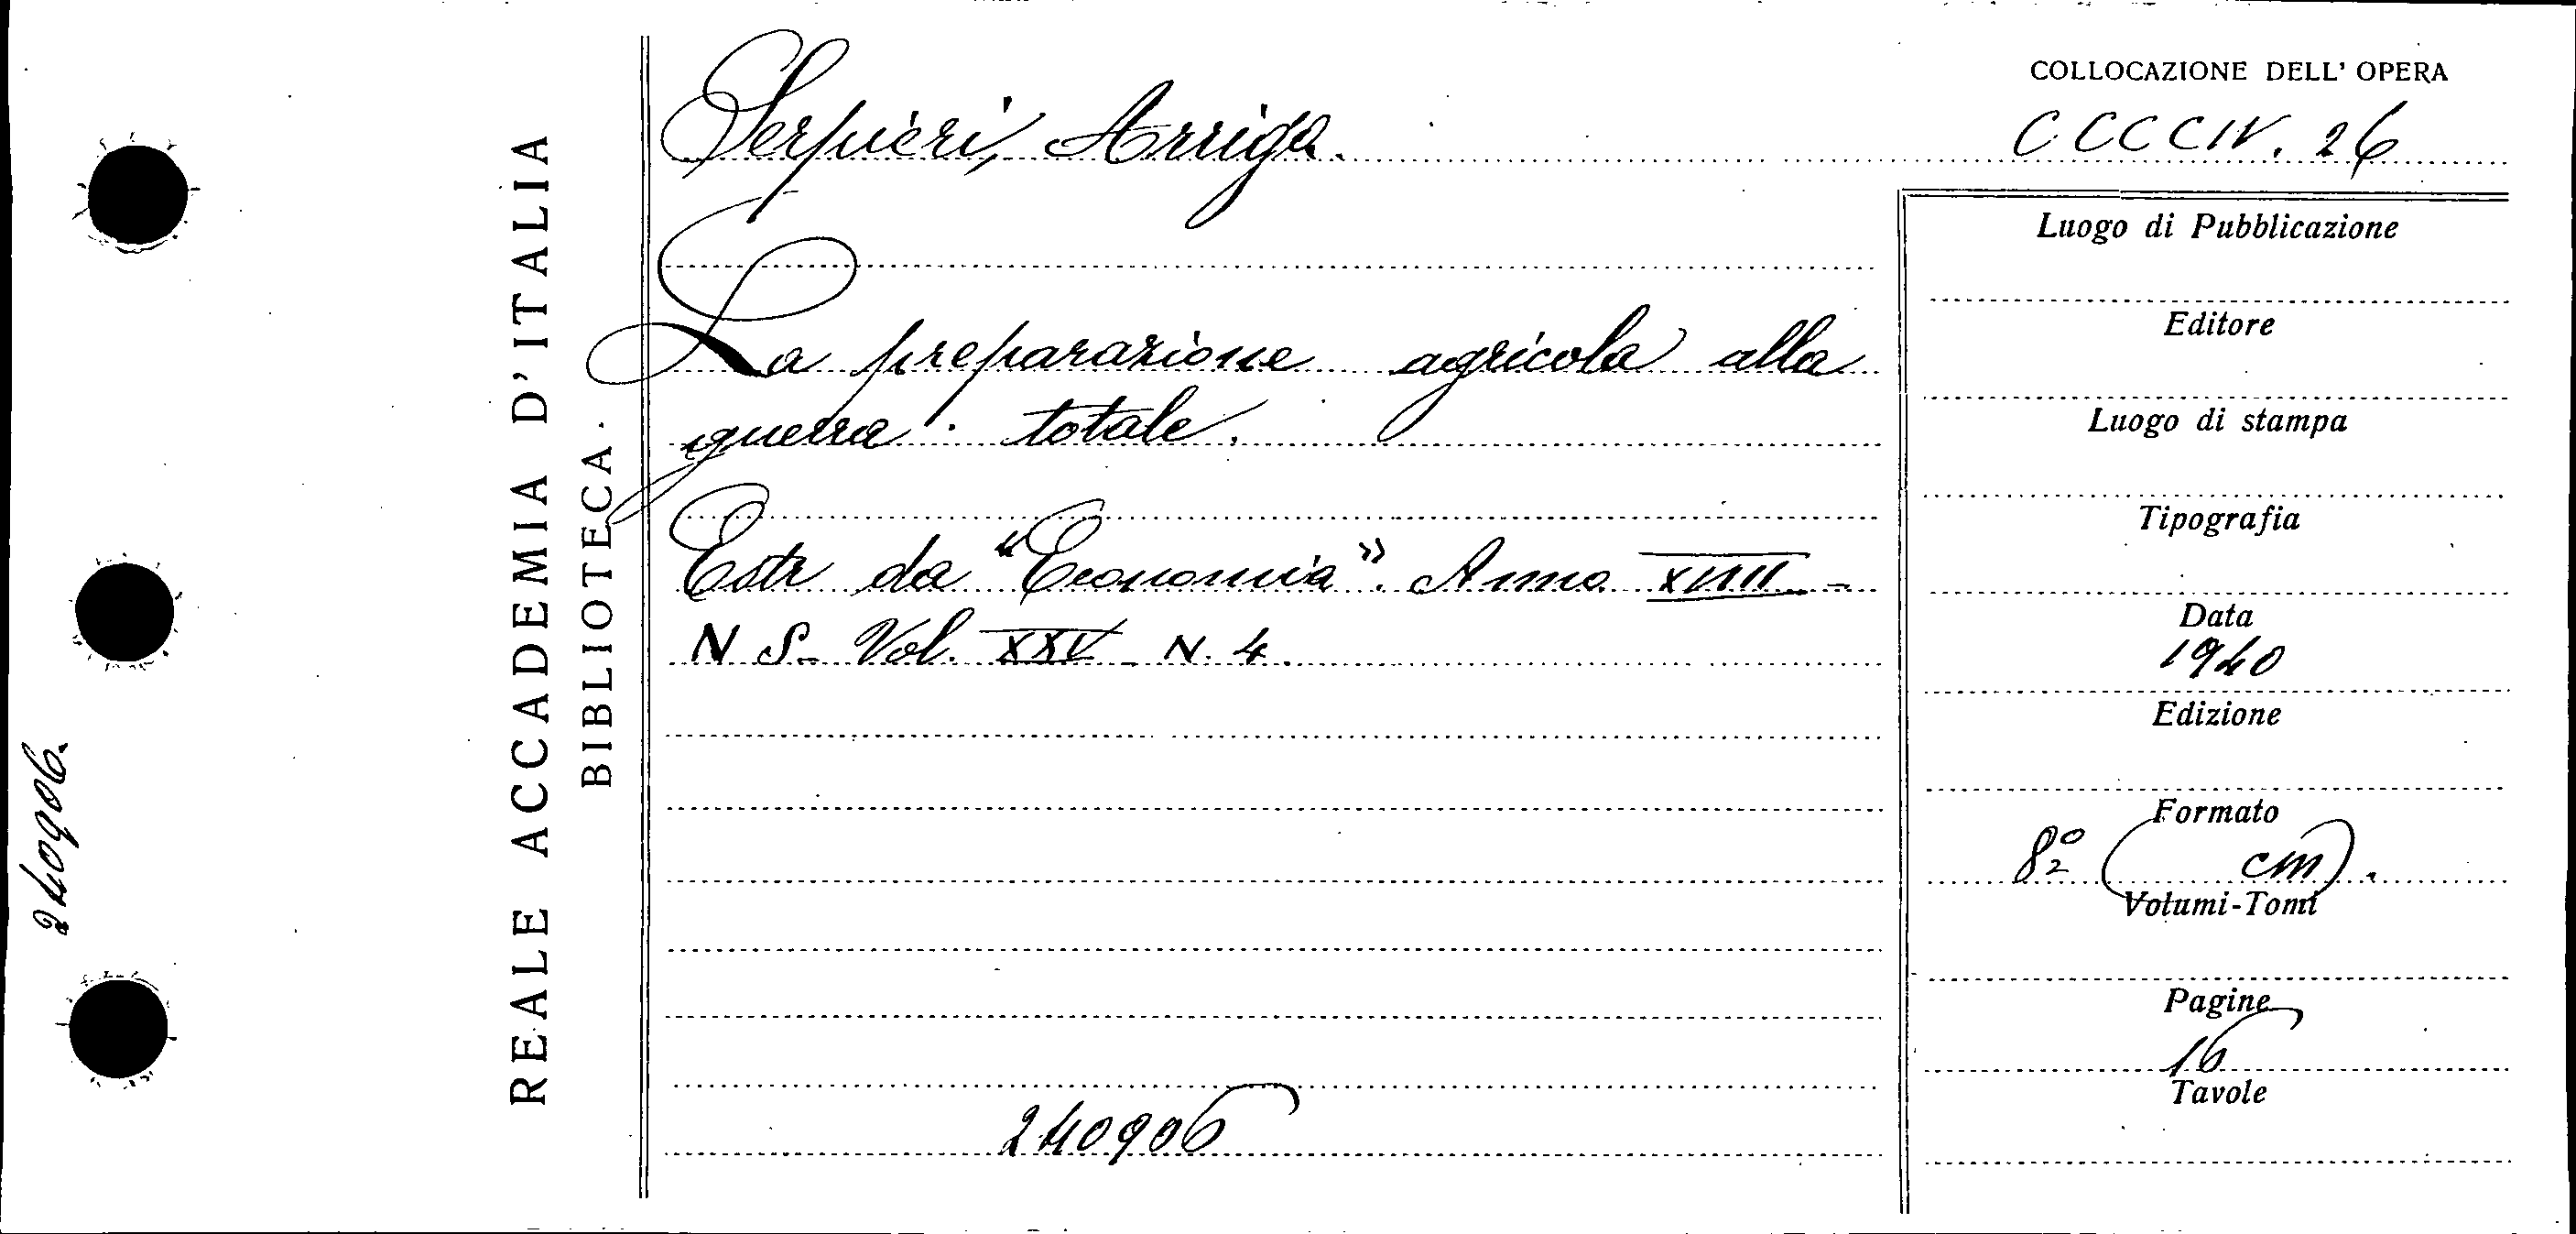 240906.
REALE ACCADEMIA D'ITALIA
BIBLIOTECA
Serpieri, Arrigo.
La preparazione agricola alla
guerra totale.
Estr da "Economia". Anno XVIII -
N. S. Vol. XXV - N. 4.
240906
COLLOCAZIONE DELL' OPERA
CCCCIV. 26
Luogo di Pubblicazione
Editore
Luogo di stampa
Tipografia
Data
1940
Edizione
Formato
8º ( cm).
Volumi-Tomi
Pagine
16
Tavole